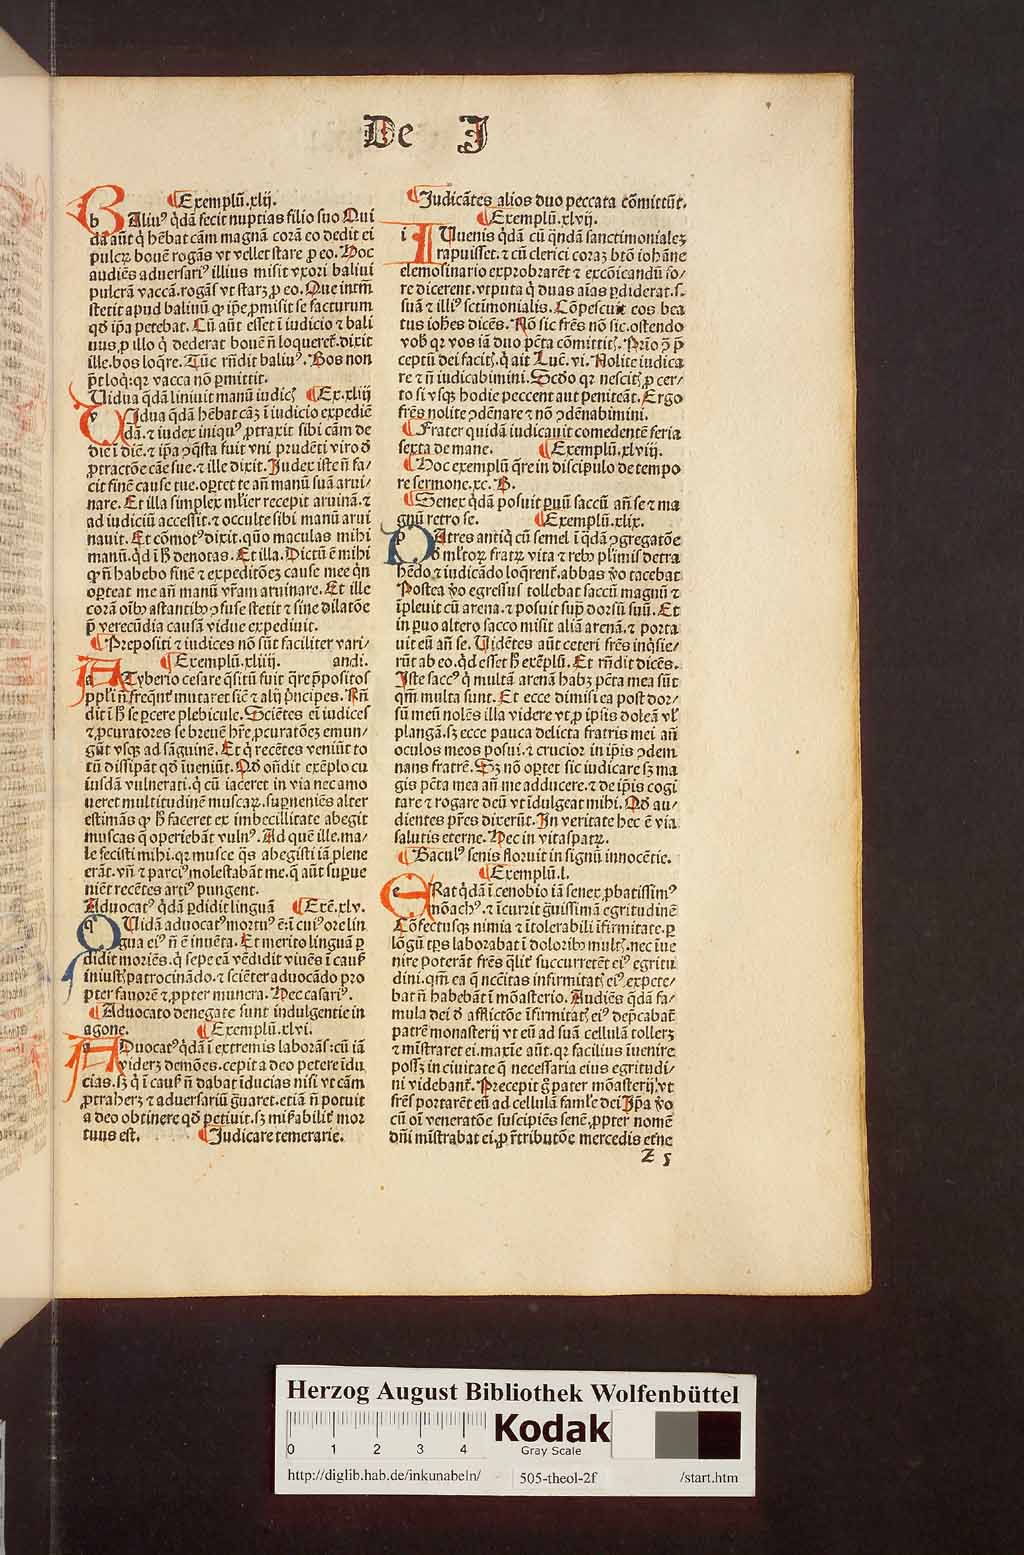 De J
¶Exemplũ.xlij.
bAliuꝰ q̇dã fecit nuptias filio suo Qui
dã aũt q̇ hēbat cãm magnã corã eo dedit ei
pulcꝝ bouē rogãs vt vellet stare ꝑ eo. Hoc
audiēs aduersariꝰ illius misit vxori baliui
pulcrã vaccã.rogãs vt starꝫ ꝑ eo. Que intm̄
stetit apud baliuũ ꝙ ip̄e ꝓmisit se facturum
qd̄ ip̄a petebat. Cũ aũt esset ĩ iudicio ⁊ bali
uus, ꝑ illo q̇ dederat bouē n̄ loqueret̃.dixit
ille.bos loq̄re. Tũc rñdit baliuꝰ. Bos non
p̄t loq̇:qꝛ vacca nõ ꝑmittit.
Uidua q̇dã liniuit manũ iudicꝭ ¶Ex.xliij
vIdua q̇dã hēbat cãꝫ ĩ iudicio expediē
dã.⁊ iudex iniquꝰ ꝓtraxit sibi cãm de
die ĩ diē.⁊ ip̄a ꝯq̄sta fuit vni prudēti viro đ
ꝓtractõe cãe sue.⁊ ille dixit. Judex iste n̄ fa/
cit finē cause tue.oꝑtet te añ manũ suã arui/
nare. Et illa simplex mĺier recepit aruinã.⁊
ad iudiciũ accessit.⁊ occulte sibi manũ arui
nauit. Et cõmotꝰ dixit.quõ maculas mihi
manũ.qd̄ ĩ h̄ denotas. Et illa. Dictũ ē mihi
ꝙ n̄ habebo finē ⁊ expeditõeꝫ cause mee q̇n
oꝑteat me añ manũ vr̄am aruinare. Et ille
corã oĩbꝰ astantibꝰ ꝯfuse stetit ⁊ sine dilatõe
p̄ verecũdia causã vidue expediuit.
¶Prepositi ⁊ iudices nõ sũt faciliter vari/
¶Exemplũ.xliiij. andi.
aTyberio cesare q̄sitũ fuit q̄re p̄positos
ppĺi n̄ freq̄nt̃ mutaret sic̄ ⁊ alij ṗncipes. Rñ
dit ĩ h̄ se ꝑcere plebicule. Sciētes eĩ iudices
⁊ ꝓcuratores se breuē hr̄e ꝓcuratõeꝫ emun/
gũt vsqꝫ ad sãguinē. Et q̇ recētes veniũt to
tũ dissipãt qd̄ ĩueniũt. Qd̄ oñdit exēplo cu
iusdã vulnerati.q̇ cũ iaceret in via nec amo
ueret multitudinē muscaꝝ.suꝑueniēs alter
estimãs ꝙ h̄ faceret ex imbecillitate abegit
muscas q̄ operiebãt vulnꝰ. Ad quē ille.ma/
le fecisti mihi.qꝛ musce q̄s abegisti iã plene
erãt.vñ ⁊ parciꝰ molestabãt me.q̄ aũt suꝑue
niēt recētes artiꝰ pungent.
Aduocatꝰ q̇dã ꝑdidit linguã ¶Exē.xlv.
qUidã aduocatꝰ mortuꝰ ē:ĩ cuiꝰ ore lin
gua eiꝰ n̄ ē inuēta. Et merito linguã ꝑ
didit moriēs.q̇ sepe eã vēdidit viuēs ĩ cauſ
iniustꝭ patrocinãdo.⁊ sciēter aduocãdo pro
pter fauorē ⁊ ꝓpter munera. Hec casariꝰ.
¶Aduocato denegate sunt indulgentie in
agone. ¶Exemplũ.xlvi.
aDuocatꝰ q̇dã ĩ extremis laborãs:cũ iã
viderꝫ demões.cepit a deo petere ĩdu
cias.sꝫ q̇ ĩ cauſ n̄ dabat ĩducias nisi vt cãm
ꝓtraherꝫ ⁊ adversariũ g̃uaret.etiã n̄ potuit
a deo obtinere qd̄ petiuit.sꝫ mirabilit̃ mor
tuus est. ¶Judicare temerarie.
¶Judicãtes alios duo peccata cõmittũt.
¶Exemplũ.xlvij.
iUuenis q̇dã cũ q̇ndã sanctimonialeꝫ
rapuisset.⁊ cũ clerici coraꝫ btõ iohãne
elemosinario exprobrarēt ⁊ excõicandũ io/
re dicerent.vtputa q̇ duas aĩas ꝑdiderat.s.
suã ⁊ illiꝰ sctimonialis. Cõpescuit eos bea
tus ioh̄es dicēs. Nõ sic fr̄es nõ sic.ostendo
vob̃ qꝛ vos iã duo pc̄ta cõmittitꝭ. Primo ꝙ p̄
ceptũ dei facitꝭ.q̇ ait Luc̄.vi. Nolite iudica
re ⁊ n̄ iudicabimini. Scđo qꝛ nescitꝭ ꝓ cer/
to si vsqꝫ hodie peccent aut peniteãt. Ergo
fr̄es nolite ꝯdēnare ⁊ nõ ꝯdēnabimini.
¶Frater quidã iudicauit comedentē feria
sexta de mane. ¶Exemplũ.xlviij.
¶Hoc exemplũ q̄re in discipulo de tempo
re sermone.xc. B.
¶Senex q̇dã posuit ꝑuũ saccũ añ se ⁊ ma
gnũ retro se. ¶Exemplũ.xlix.
pAtres antiq̇ cũ semel ĩ q̇dã ꝯgregatõe
đ mĺtoꝝ fratꝝ vita ⁊ rebꝰ pĺimis detra
hēdo ⁊ iudicãdo loq̄rent̃.abbas v̊o tacebat
Postea v̊o egressus tollebat saccũ magnũ ⁊
ĩpleuit cũ arena.⁊ posuit suꝑ dorsũ suũ. Et
in ꝑuo altero sacco misit aliã arenã.⁊ porta
uit eũ añ se. Uidētes aũt ceteri fr̄es inq̇sie/
rũt ab eo.qd̄ esset h̄ exēplũ. Et rñdit dicēs.
Iste saccꝰ q̇ multã arenã habꝫ pc̄ta mea sũt
qm̄ multa sunt. Et ecce dimisi ea post dor/
sũ meũ nolēs illa videre vt ꝓ ip̄sis doleã vĺ
plangã.sꝫ ecce pauca delicta fratris mei añ
oculos meos posui.⁊ crucior in ip̄is ꝯdem
nans fratrē. Sꝫ nõ oꝑtet sic iudicare sꝫ ma
gis pc̄ta mea añ me adducere.⁊ de ip̄is cogi
tare ⁊ rogare deũ vt ĩdulgeat mihi. Qd̄ au/
dientes pr̄es dixerũt. In veritate hec ē via
salutis eterne. Hec in vitaspatꝝ.
¶Baculꝰ senis floruit in signũ innocētie.
¶Exemplũ.l.
eRat q̇dã ĩ cenobio iã senex ꝓbatissimꝰ
mõachꝰ.⁊ ĩcurrit g̃uissimã egritudinē
Cõfectusqꝫ nimia ⁊ ĩtolerabili ĩfirmitate.ꝑ
lõgũ tꝑs laborabat ĩ doloribꝰ multꝭ.nec ĩue
nire poterãt fr̄es q̇lit̃ succurretēt eiꝰ egritu
dini.qm̄ ea q̄ nec̄itas infirmitatꝭ eiꝰ expete/
bat n̄ habebãt ĩ mõasterio. Audiēs q̇dã fa/
mula dei đ afflictõe ĩfirmitatꝭ eiꝰ dep̄cabat̃
patrē monasterij vt eũ ad suã cellulã tollerꝫ
⁊ mĩstraret ei.maxĩe aũt.qꝛ facilius ĩuenire
possꝫ in ciuitate q̄ necessaria eius egritudi/
ni videbant̃. Precepit g̊ pater mõasterij.vt
fr̄es portarēt eũ ad cellulã famĺe dei Ip̄a v̊o
cũ oĩ veneratõe suscipiēs senē.ꝓpter nomē
dñi mĩstrabat ei.ꝓ r̃tributõe mercedis et̃ne
Z 5
Herzog August Bibliothek Wolfenbüttel
0 1 2 3 4
Kodak
Gray Scale
http://diglib.hab.de/inkunabeln/ 505-theol-2f /start.htm